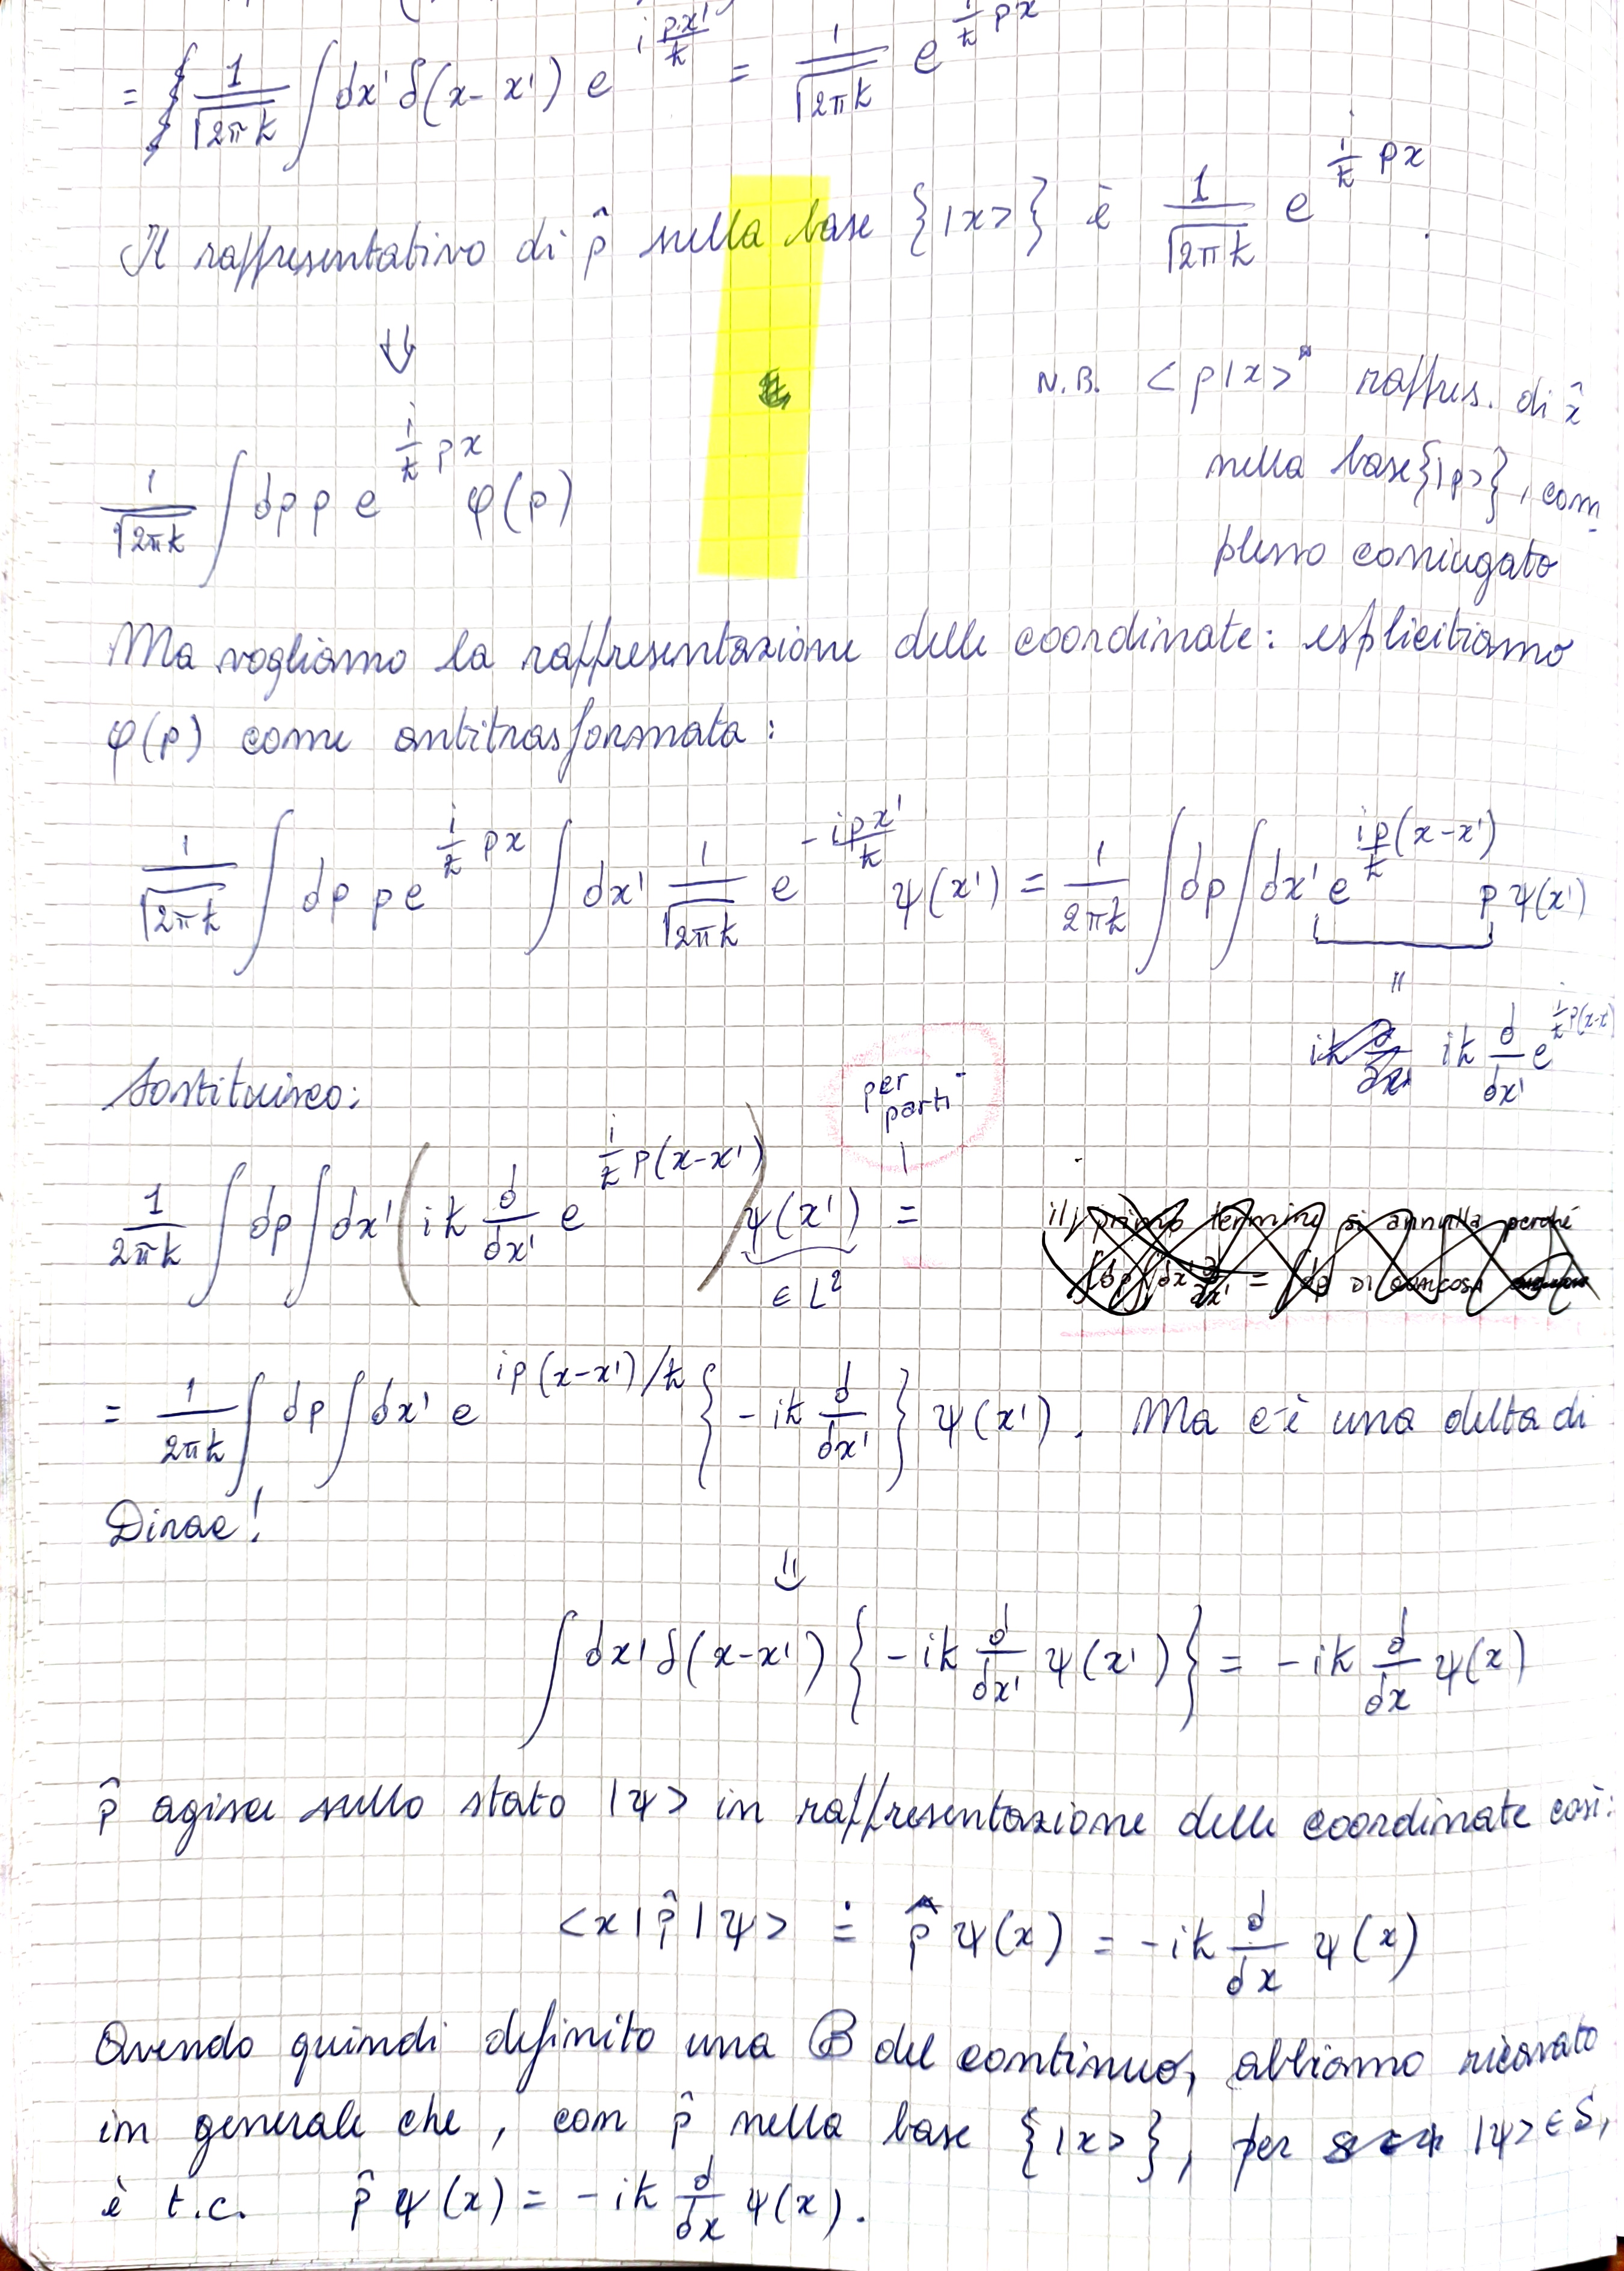 = 1/√2πħ ∫ dx' δ(x-x') e^{i p·x'/ħ} = 1/√2πħ e^{i/ħ px}
Il rappresentativo di p̂ nella base {|x>} è 1/√2πħ e^{i/ħ px}.
⇓
N.B. <p|x>* rappres. di x̂
nella base {|p>}, com
plesso coniugato
1/√2πħ ∫ dp p e^{i/ħ px} φ(p)
Ma vogliamo la rappresentazione delle coordinate: esplicitiamo
φ(p) come antitrasformata:
1/√2πħ ∫ dp p e^{i/ħ px} ∫ dx' 1/√2πħ e^{-ipx'/ħ} ψ(x') = 1/2πħ ∫ dp ∫ dx' e^{ip/ħ (x-x')} p ψ(x')
=
iħ d/dx' e^{i/ħ p(x-x')}
Sostituisco:
per
parti
1/2πħ ∫ dp ∫ dx' ( iħ d/dx' e^{i/ħ p(x-x')} ) ψ(x') =
∈ L²
il primo termine si annulla perché
= 1/2πħ ∫ dp ∫ dx' e^{ip(x-x')/ħ} { -iħ d/dx' } ψ(x'). Ma c'è una delta di
Dirac!
⇓
∫ dx' δ(x-x') { -iħ d/dx' ψ(x') } = -iħ d/dx ψ(x)
p̂ agisce sullo stato |ψ> in rappresentazione delle coordinate così:
<x|p̂|ψ> ≐ p̂ ψ(x) = -iħ d/dx ψ(x)
Avendo quindi definito una B del continuo, abbiamo ricavato
in generale che, con p̂ nella base {|x>}, per |ψ> ∈ S,
è t.c. p̂ ψ(x) = -iħ d/dx ψ(x).